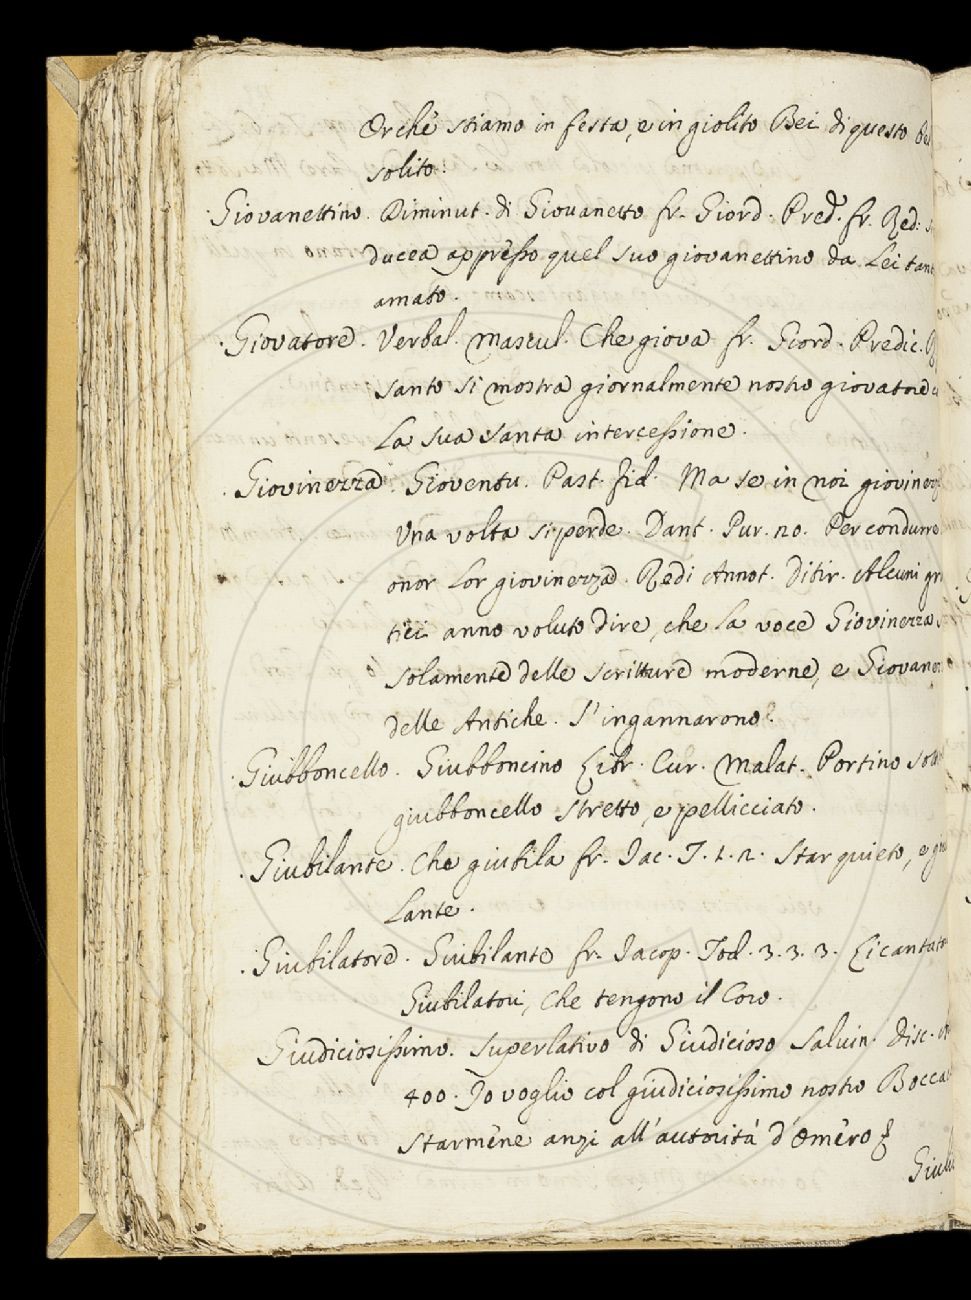 Orchè stiamo in festa, e in giolito Bei di questo
solito.
Giovanettino. Diminut. di Giovanetto fr. Giord. Pred. fr. Red.
ducea appresso quel suo giovanettino da Lei tant
amato.
Giovatore. Verbal. mascul. Che giova fr. Giord. Predic.
santo si mostra giornalmente nostro giovatore
La sua santa intercessione.
Giovinezza. Gioventu. Past. fid. Ma se in noi giovinez
Una volta si perde. Dant. Pur. 20. Per condurre
onor Lor giovinezza. Redi Annot. Ditir. Alcuni gr
tici anno voluto dire, che la voce Giovinezza
solamente delle scritture moderne, e Giovane
delle Antiche. S'ingannarono.
Giubboncello. Giubboncino Libr. Cur. Malat. Portino
giubboncello stretto, e pellicciato.
Giubilante. Che giubila fr. Iac. T. 1. 2. Star quieto, e giu
Lante.
Giubilatore. Giubilante fr. Iacop. Tod. 3. 3. 3. Licantato
Giubilatori, che tengono il Coro.
Giudiciosissimo. Superlativo di Giudicioso Salvin. Disc.
400. Io voglio col giudiciosissimo nostro Bocca
starmène anzi all'autorità d'Omèro
Giu